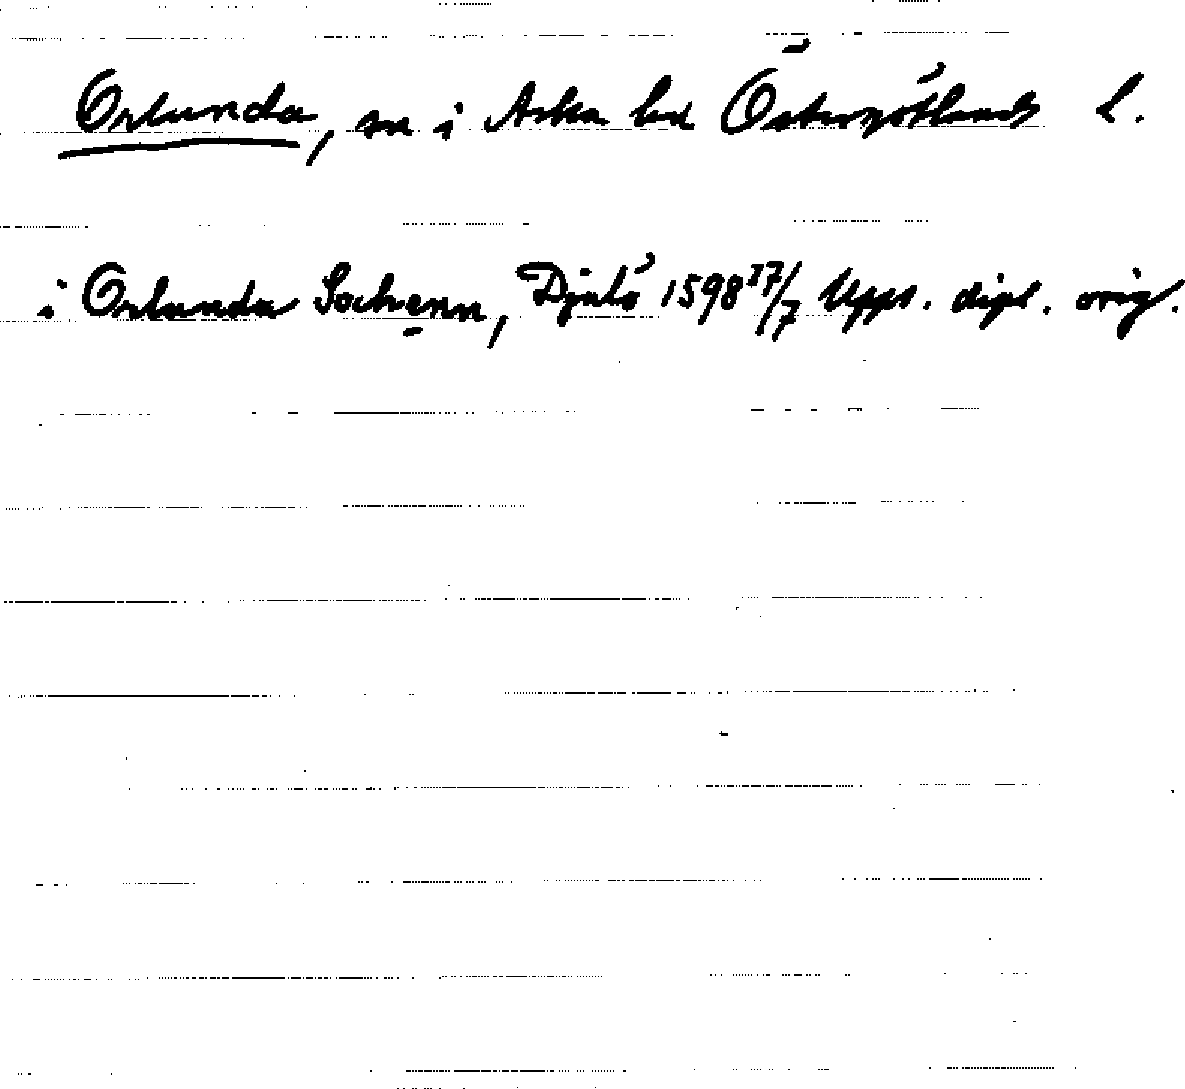 Orlunda, sn i Aska hd Östergötlands l.
i Orlunda Sochenn, Djulö 1598 17/7 Upps. dipl. orig.